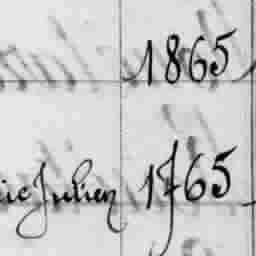 1865
Julien 1765